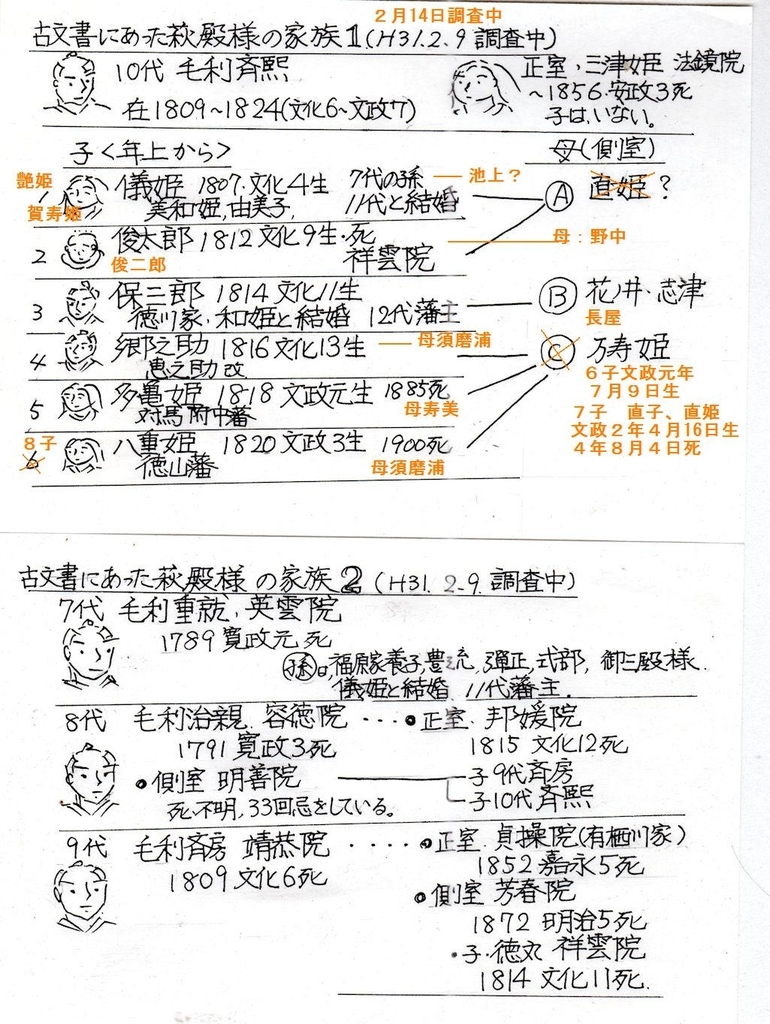 2月14日調査中
古文書にあった萩殿様の家族1(H31.2.9 調査中)
10代 毛利斉熙
在1809~1824(文化6~文政7)
正室・三津姫 法鏡院
~1856・安政3死
子は、いない。
子<年上から>
母(側室)
艶姫
賀寿姫
1
儀姫 1807・文化4生
美和姫、由美子、
7代の孫
11代と結婚
池上?
Ⓐ 直姫?
2 俊太郎 1812 文化9生・死
祥雲院
俊二郎
母:野中
3 保三郎 1814 文化11生
徳川家・和姫と結婚 12代藩主
Ⓑ 花ノ井・志津
長屋
4 郷之助 1816 文化13生
恵之助 改
母須磨浦
Ⓒ 万寿姫
6子文政元年
7月9日生
7子 直子、直姫
文政2年4月16日生
4年8月4日死
5 多亀姫 1818 文政元生 1885死
対馬府中藩
母寿美
8子
6 八重姫 1820 文政3生 1900死
徳山藩
母須磨浦
古文書にあった萩殿様の家族2(H31.2.9.調査中)
7代 毛利重就、英雲院
1789 寛政元死
孫は、福原家養子、豊之流、弾正、式部、御三殿様
儀姫と結婚 11代藩主.
8代 毛利治親 容徳院 ・・・●正室 邦媛院
1791 寛政3死
1815 文化12死
●側室 明善院
子9代斉房
子10代斉熙
死不明、33回忌をしている。
9代 毛利斉房 靖恭院 ・・・・・●正室 貞操院(有栖川家)
1809 文化6死
1852 嘉永5死
●側室 芳春院
1872 明治5死
・子・徳丸 祥雲院
1814 文化11死.